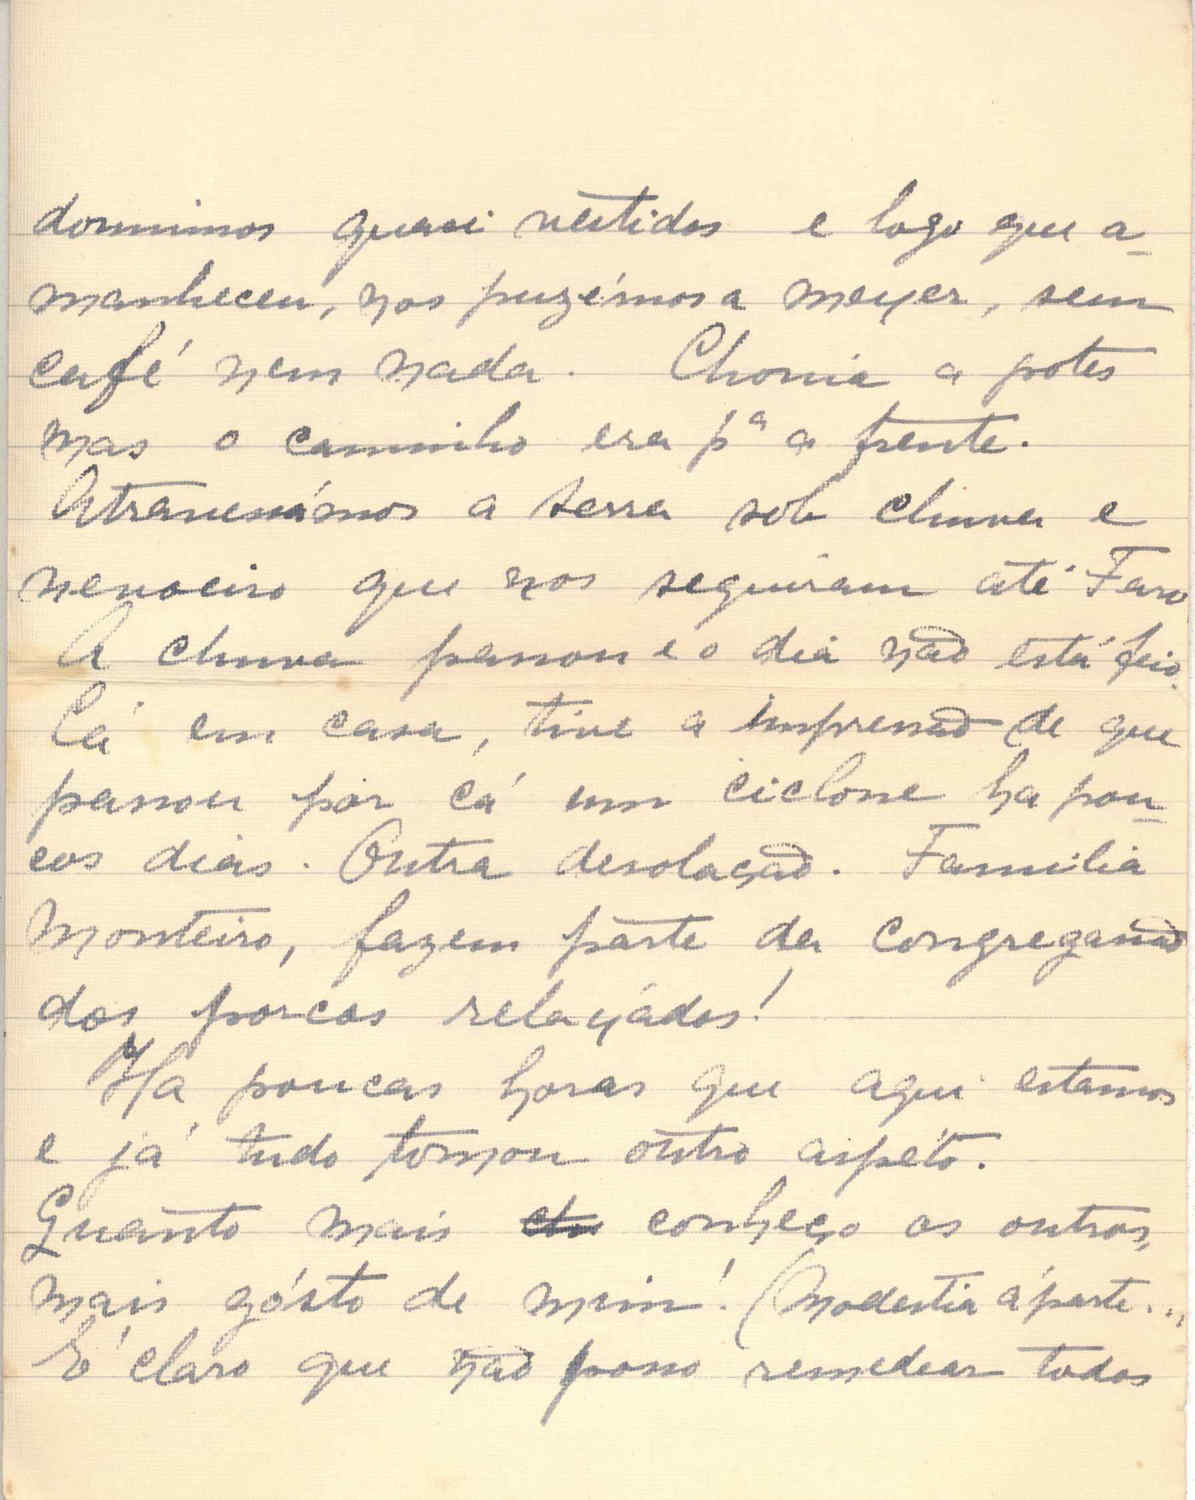 dormimos quasi vestidos e logo que a-
manheceu, nos puzémos a mexer, sem
café nem nada. Chovia a potes
mas o caminho era pª a frente.
Atravessámos a serra sob chuva e
nevoeiro que nos seguiram até Faro
A chuva passou e o dia não está feio.
Cá em casa, tive a impressão de que
passou por cá um ciclone ha pou-
cos dias. Outra desolação. Familia
Monteiro, fazem parte da congregação
dos porcos relaxádos!
Há poucas horas que aqui estamos
e já tudo tomou outro aspéto.
Quanto mais conheço os outros,
mais gósto de mim! (Modestia á parte...
É claro que não posso remedear todos